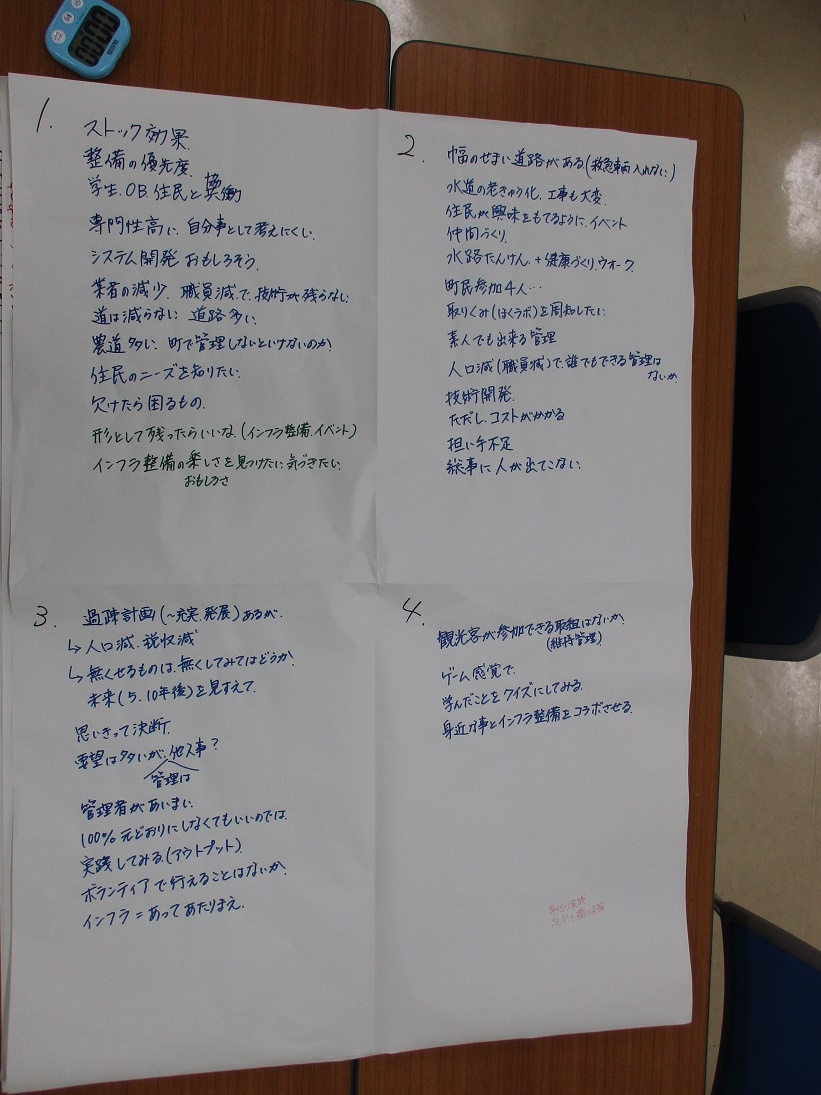 00:00
1.
ストック効果.
整備の優先度.
学生.OB.住民と 働
専門性高い.自分事として考えにくい.
システム開発 おもしろそう.
業者の減少. 職員減で、技術が残らない
道は減らない 道路多い.
農道多い. 町で管理しないといけないのか?
住民のニーズを知りたい.
欠けたら困るもの.
形として残ったらいいな.(インフラ整備.イベント)
インフラ整備の楽しさを見つけたい.気づきたい.
おもしろさ
2.
幅のせまい道路がある(救急車両入れない)
水道の老きゅう化.工事も大変.
住民が興味をもてるように.イベント
仲間づくり.
水路たんけん.+健康づくり.ウオーク.
町民参加4人…
取りくみ(ほくラボ)を周知したい
素人でも出来る管理
人口減(職員減)で、誰でもできる管理は
ないか.
技術開発.
ただし.コストがかかる
担い手不足
総事に人が出てこない.
3.
過疎計画(～充実.発展)あるが.
↳人口減.税収減
↳無くせるものは.無くしてみてはどうか.
未来(5.10年後)を見すえて.
思いきって決断.
要望は多いが.他人事?
管理は
管理者があいまい.
100%元どおりにしなくてもいいのでは.
実践してみる.(アウトプット)
ボランティアで行えることはないか.
インフラ=あってあたりまえ.
4.
観光客が参加できる取組はないか.
(維持管理)
ゲーム感覚で.
学んだことをクイズにしてみる.
身近な事とインフラ整備をコラボさせる.